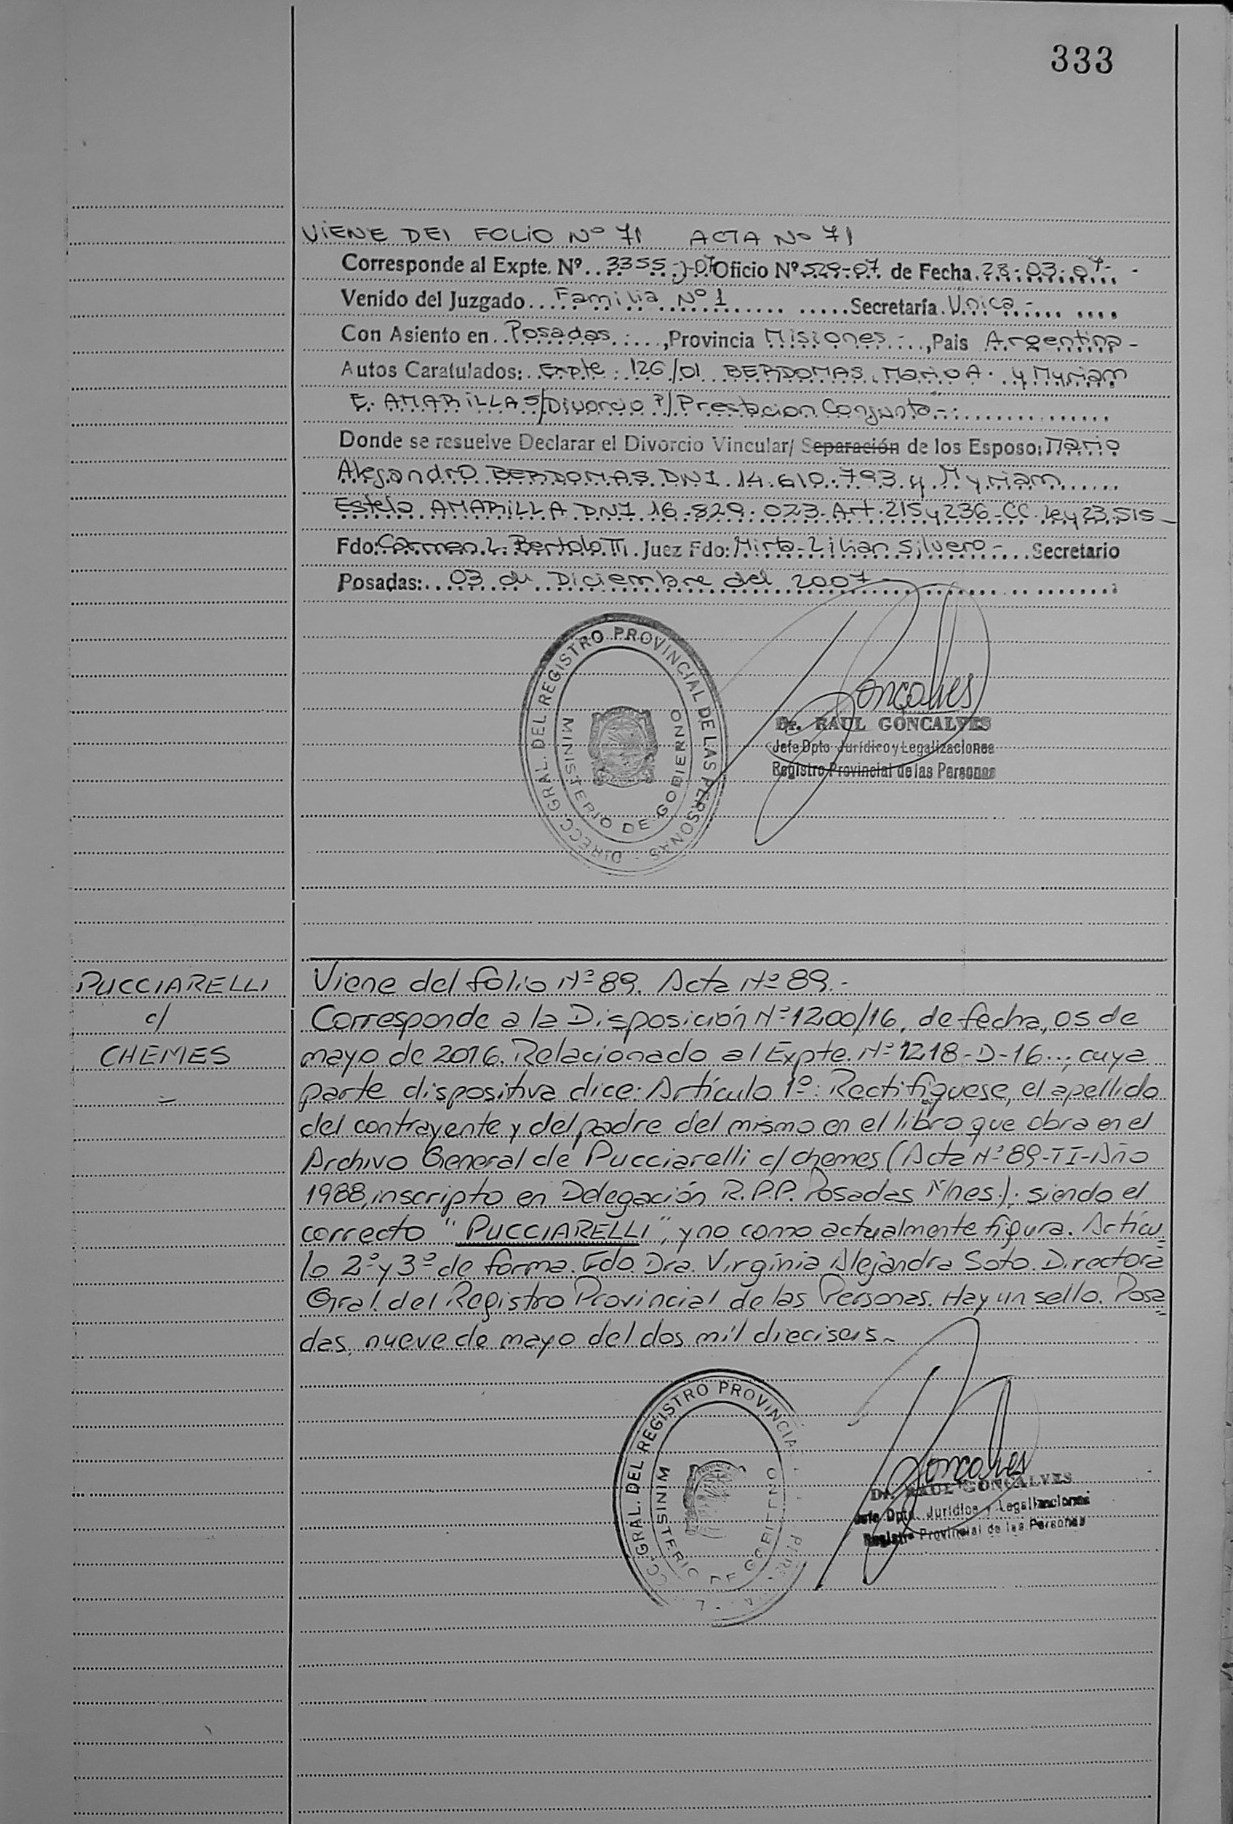 333
VIENE DEL FOLIO Nº 71 ACTA Nº 71
Corresponde al Expte. Nº. . 3355-J-07 Oficio Nº 529-07. de Fecha. 28-03-07- -
Venido del Juzgado. . . Familia Nº 1 . . . . . Secretaría. Única.-
Con Asiento en. . Posadas.-. . . . ,Provincia Misiones.-. . ,Pais Argentina-
Autos Caratulados: Expte: 126/01 BERDOMAS, Mario A. y Myriam
E. AMARILLA S/Divorcio P/Prestacion Conjunta.-:
Donde se resuelve Declarar el Divorcio Vincular/ Separación de los Esposo: Mario
Alejandro BERDOMAS. DNI. 14.610.793. y Myriam
Estela AMARILLA DNI 16.829.023. Art. 215 y 236-CC. Ley 23.515-
Fdo: Carmen L. Bertolotti. Juez Fdo: Mirta-Lilian Silvero-. . . Secretario
Posadas:. . 03 de Diciembre del 2007
DIRECC. GRAL. DEL REGISTRO PROVINCIAL DE LAS PERSONAS
MINISTERIO DE GOBIERNO
Goncalves
Dr. RAUL GONCALVES
Jefe Dpto Jurídico y Legalizaciones
Registro Provincial de las Personas
PUCCIARELLI
c/
CHEMES
Viene del folio Nº 89. Acta Nº 89.-
Corresponde a la Disposición Nº 1200/16, de fecha, 05 de
mayo de 2016. Relacionado al Expte. Nº 1218-D-16.., cuya
parte dispositiva dice: Artículo 1º: Rectifíquese, el apellido
del contrayente y del padre del mismo en el libro que obra en el
Archivo General de Pucciarelli c/ chemes (Acta Nº 89-TI-Año
1988, inscripto en Delegación R.P.P. Posadas Mnes.); siendo el
correcto "PUCCIARELLI", y no como actualmente figura. Artícu
lo 2º y 3º de forma. Fdo. Dra. Virginia Alejandra Soto. Directora
Gral. del Registro Provincial de las Personas. Hay un sello. Posa=
das, nueve de mayo del dos mil dieciseis.-
CC. GRAL. DEL REGISTRO PROVINCIA
MINISTERIO DE GOBIERNO
Goncalves
Dr. RAUL GONCALVES
Jefe Dpto. Jurídico y Legalizaciones
Registro Provincial de las Personas